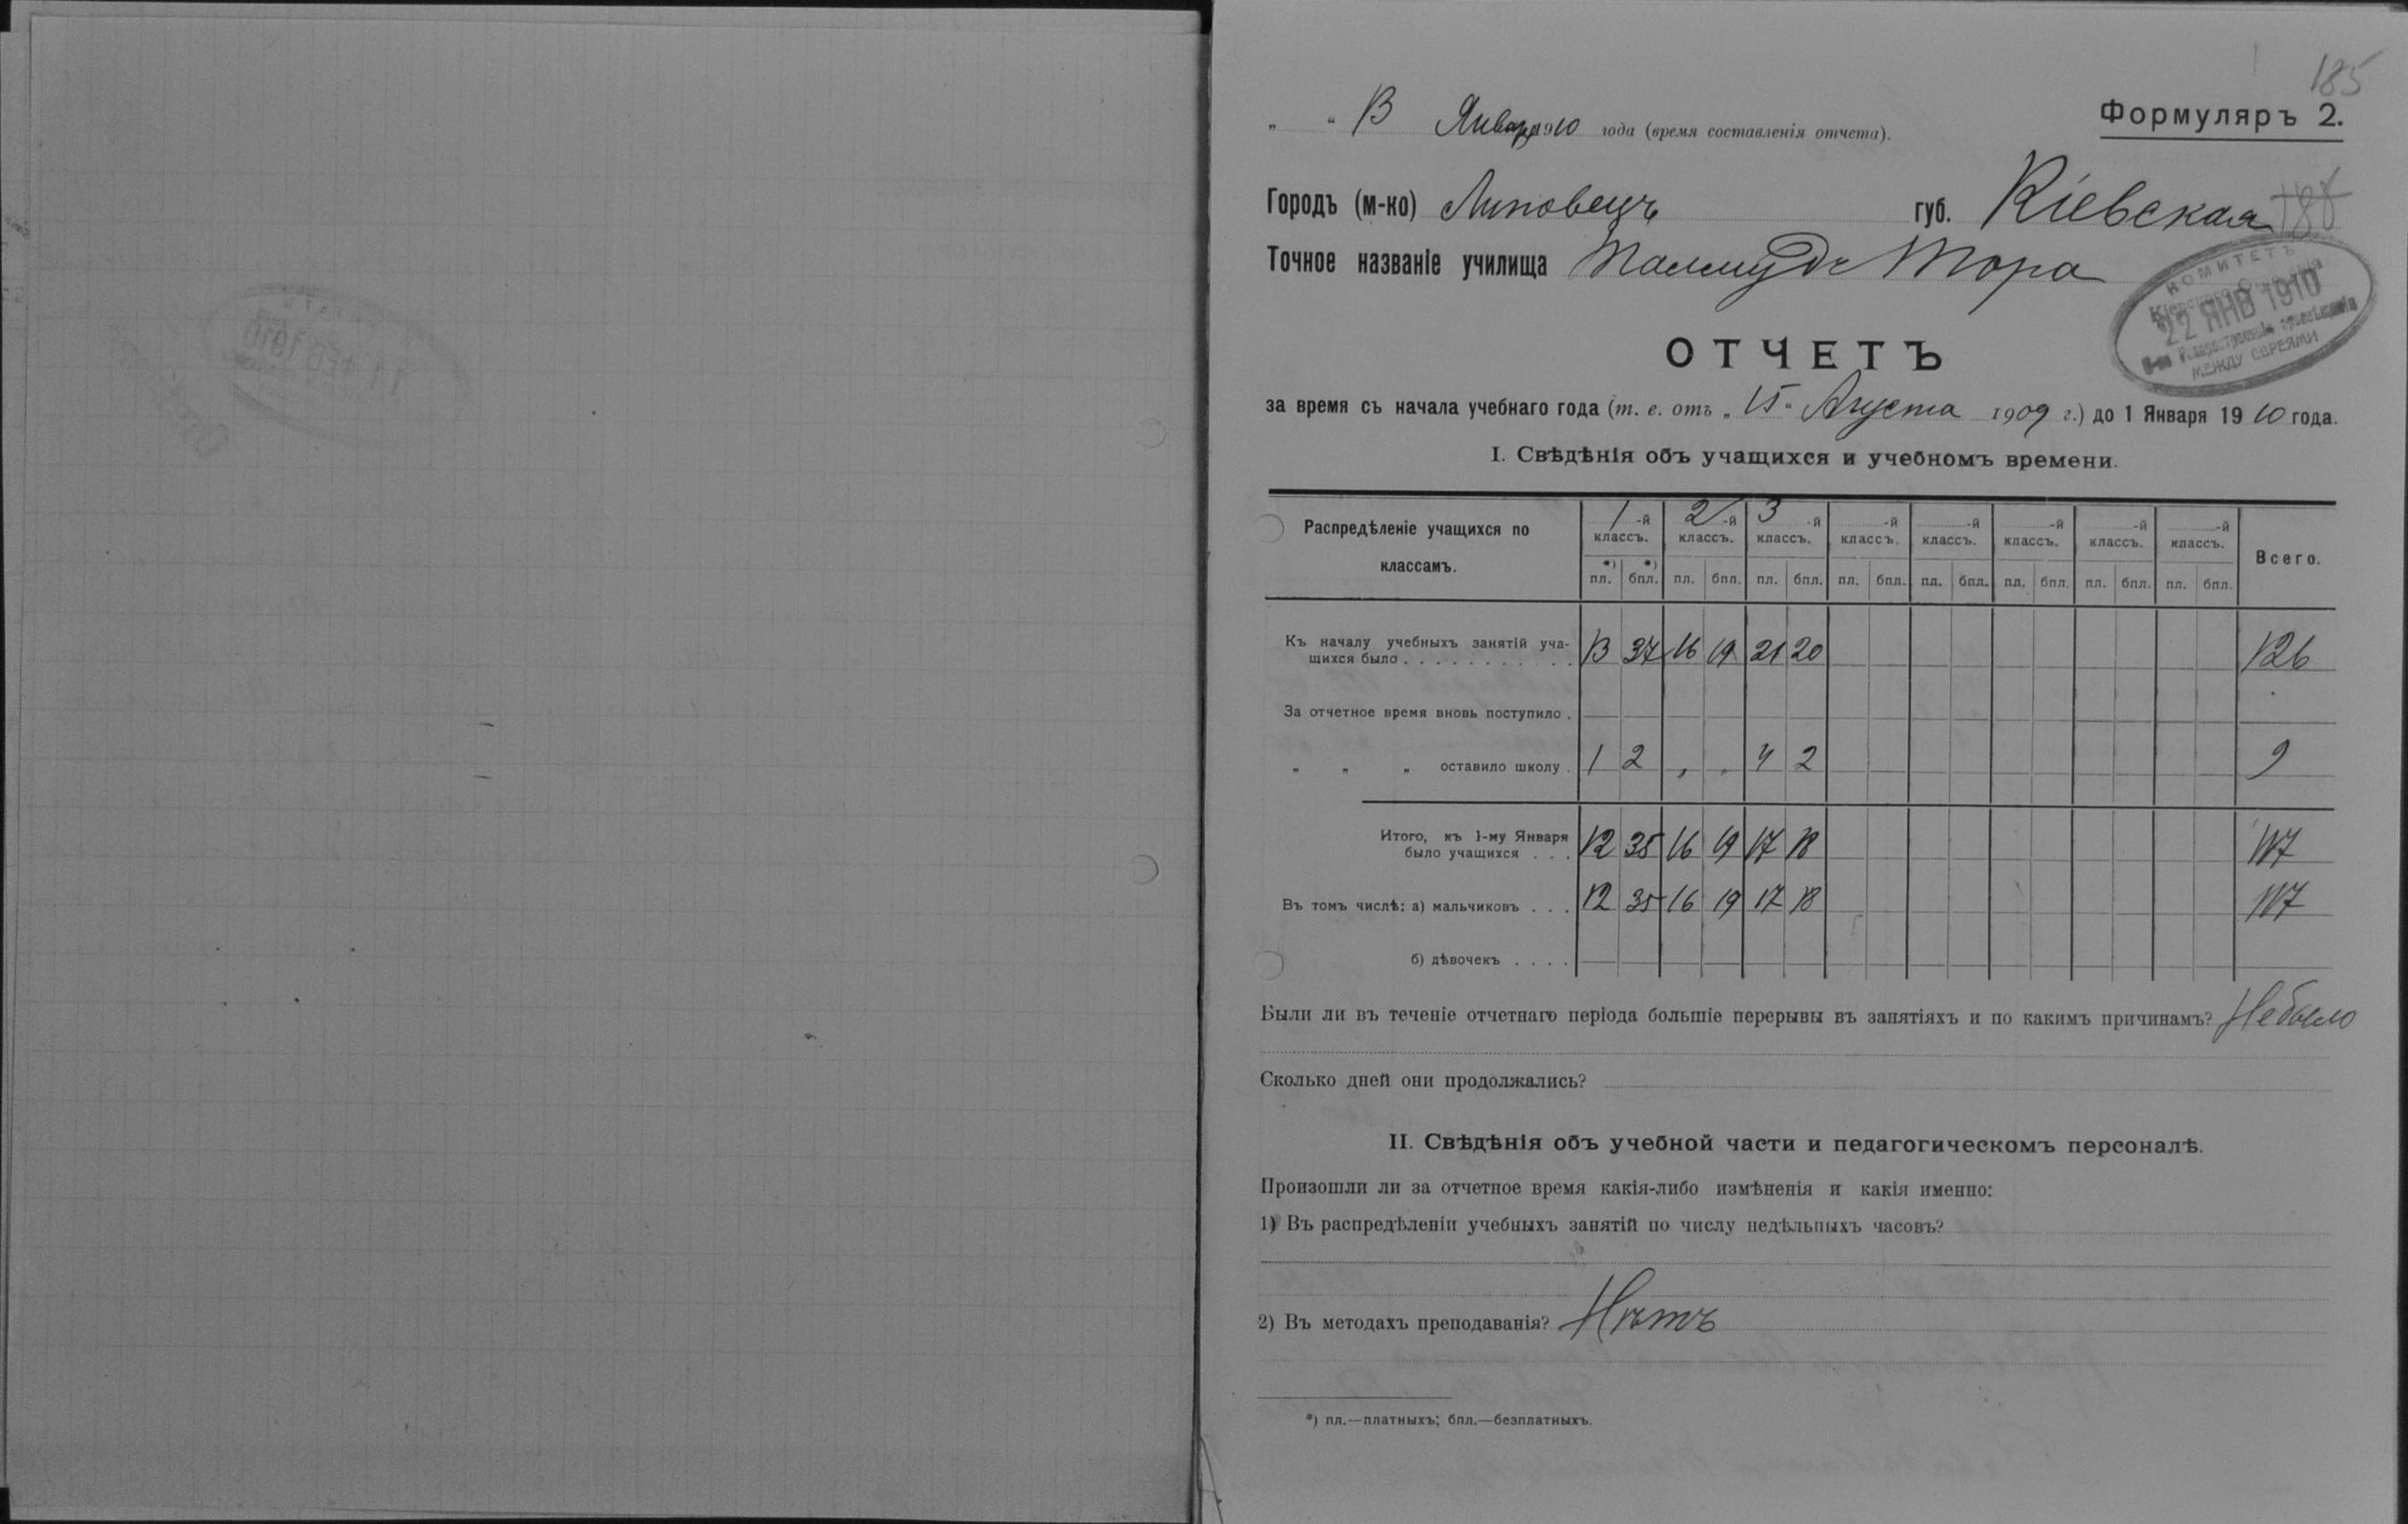 185
Формуляръ 2.
„ “ 13 Января 1910 года (время составленія отчета).
Городъ (м-ко) Липовецъ губ. Кіевская
185
Точное названіе училища Талмудъ Тора
КОМИТЕТЪ
22 ЯНВ 1910
МЕЖДУ ЕВРЕЯМИ
ОТЧЕТЪ
за время съ начала учебнаго года (т. е. отъ „15“ Августа 1909 г.) до 1 Января 1910 года.
I. Свѣдѣнія объ учащихся и учебномъ времени.
Распредѣленіе учащихся по классамъ.
1-й классъ. 2-й классъ. 3-й классъ. -й классъ. -й классъ. -й классъ. -й классъ. -й классъ. Всего.
*) пл. *) бпл. пл. бпл. пл. бпл. пл. бпл. пл. бпл. пл. бпл. пл. бпл. пл. бпл.
Къ началу учебныхъ занятій уча-
щихся было 13 37 16 19 21 20 126
За отчетное время вновь поступило
„ „ „ оставило школу 1 2 „ „ 4 2 9
Итого, къ 1-му Января
было учащихся 12 35 16 19 17 18 117
Въ томъ числѣ: а) мальчиковъ 12 35 16 19 17 18 117
б) дѣвочекъ
Были ли въ теченіе отчетнаго періода большіе перерывы въ занятіяхъ и по какимъ причинамъ? Не было
Сколько дней они продолжались?
II. Свѣдѣнія объ учебной части и педагогическомъ персоналѣ.
Произошли ли за отчетное время какія-либо измѣненія и какія именно:
1) Въ распредѣленіи учебныхъ занятій по числу недѣльныхъ часовъ?
2) Въ методахъ преподаванія? Нѣтъ
*) пл.—платныхъ; бпл.—безплатныхъ.